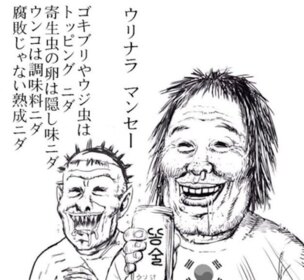 ウリナラ マンセー
ゴキブリやウジ虫は
トッピング ニダ
寄生虫の卵は隠し味ニダ
ウンコは調味料ニダ
腐敗じゃない熟成ニダ